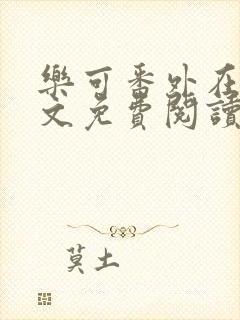 樂可番外在
文免費閱讀
莫土